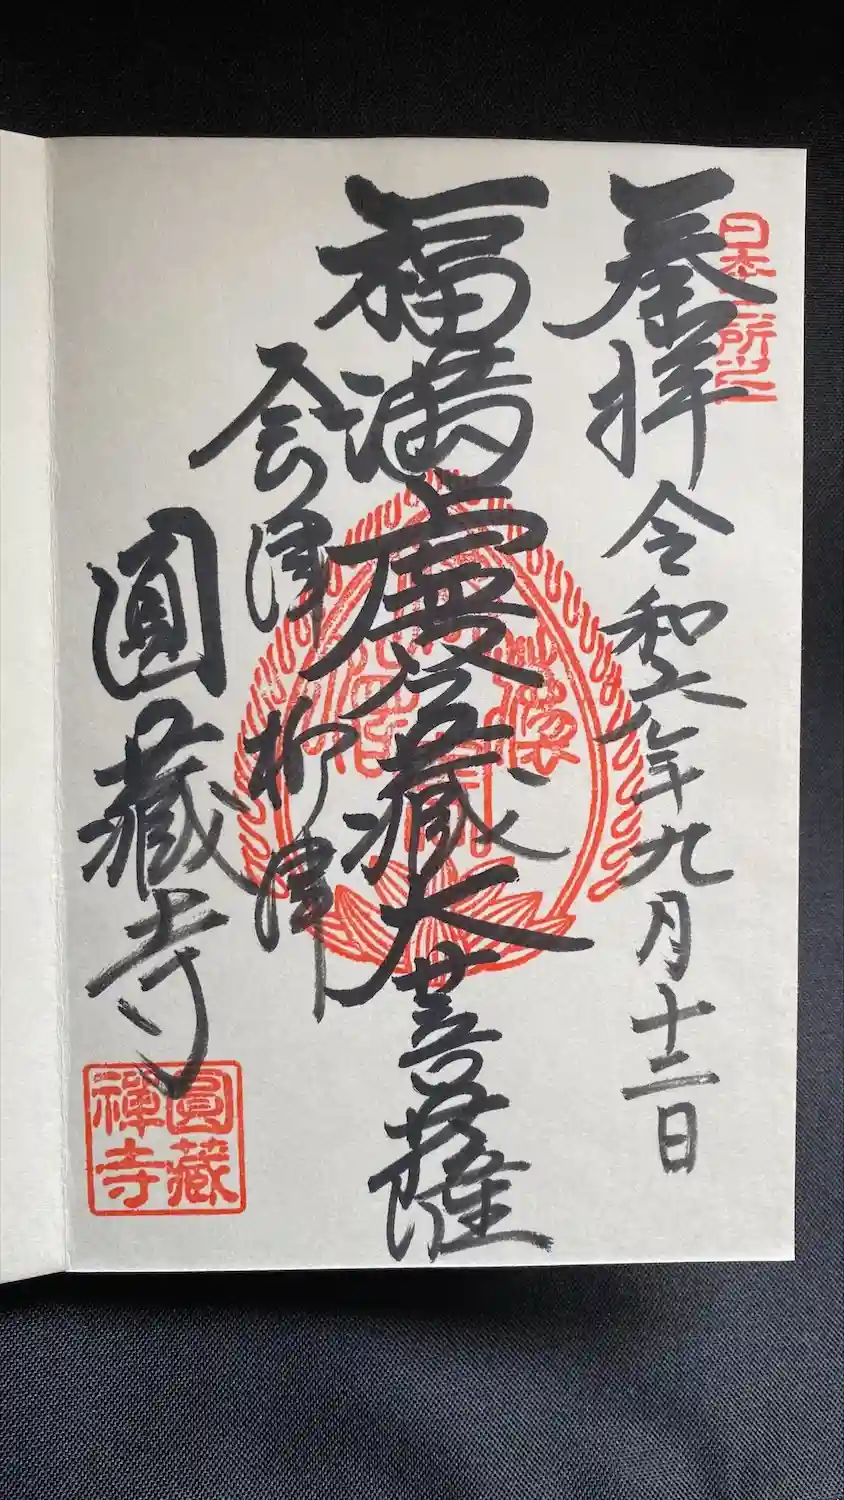 日本三所之一
奉拝 令和六年九月十二日
福満虚空藏大菩薩
会津柳津
圓藏寺
圓藏
禪寺